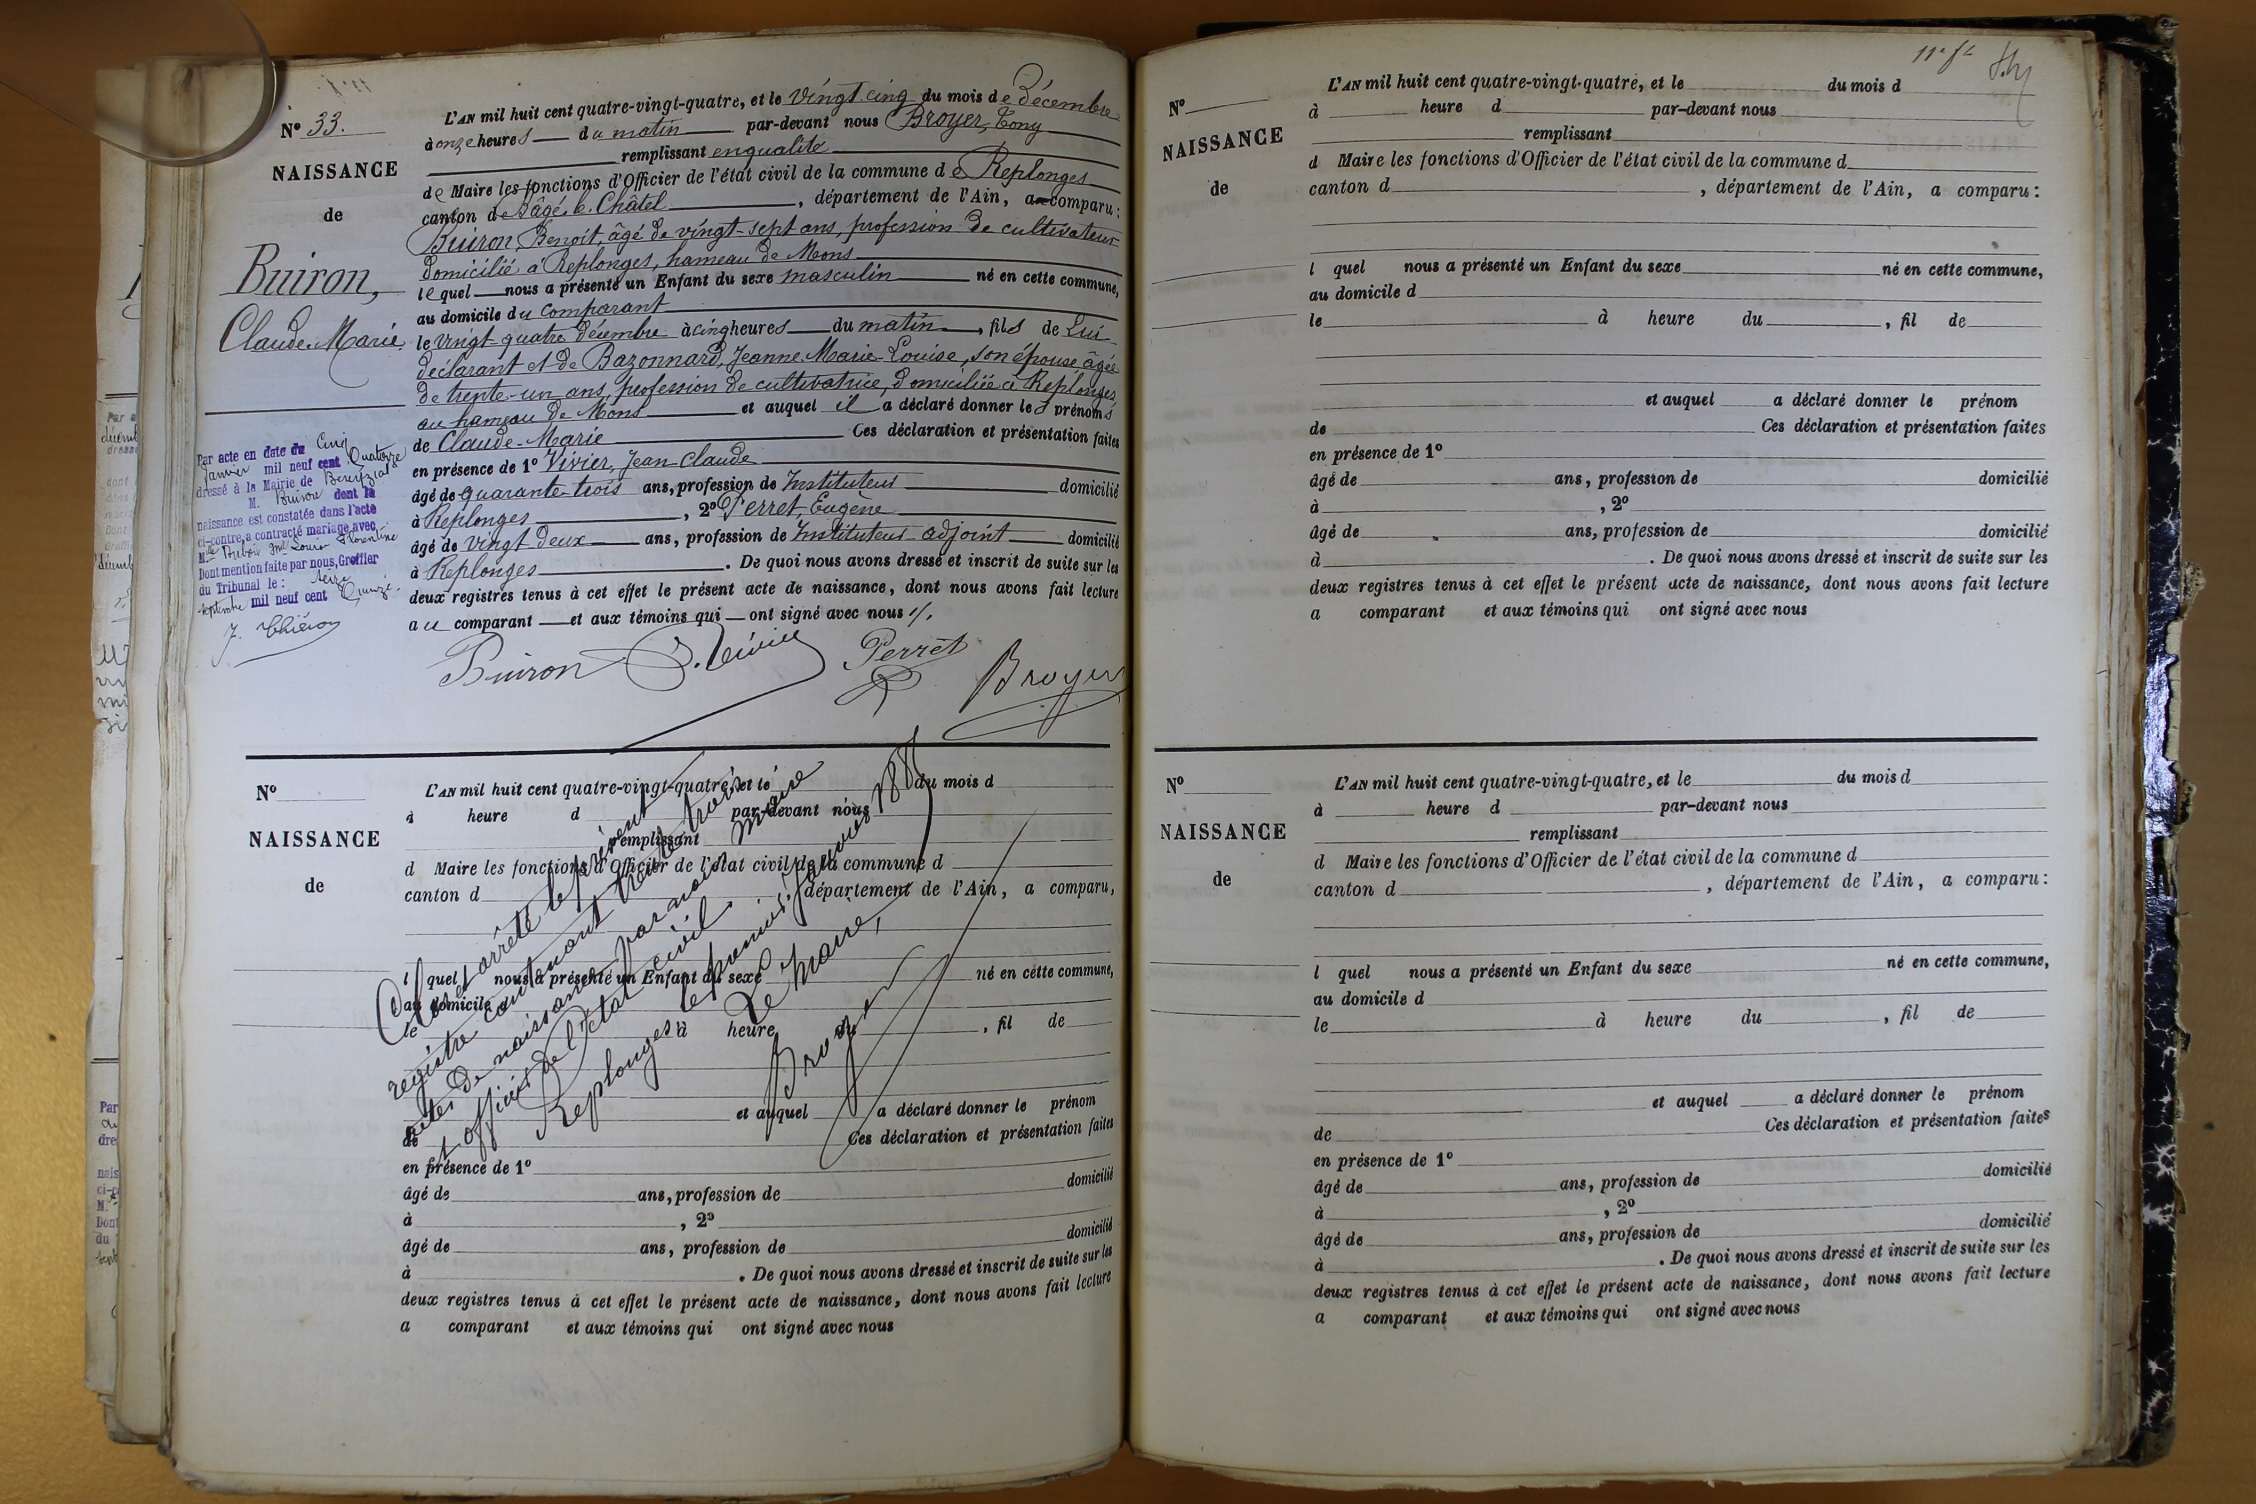 N° 33.
NAISSANCE
de
Buiron,
Claude-Marie.
L'AN mil huit cent quatre-vingt-quatre, et le vingt cinq du mois de décembre
à onze heures du matin par-devant nous Broyer, Tony
remplissant en qualité
de Maire les fonctions d'Officier de l'état civil de la commune de Replonges
canton de Bâgé-le-Châtel, département de l'Ain, a comparu:
Buiron, Benoit, âgé de vingt-sept ans, profession de cultivateur
domicilié à Replonges, hameau de Mons
lequel nous a présenté un Enfant du sexe masculin né en cette commune,
au domicile du comparant
le vingt-quatre décembre à cinq heures du matin, fils de Lui
déclarant et de Bazonnard, Jeanne Marie-Louise, son épouse âgée
de trente-un ans, profession de cultivatrice, domiciliée à Replonges,
au hameau de Mons et auquel il a déclaré donner les prénoms
de Claude-Marie Ces déclaration et présentation faites
en présence de 1° Vivier, Jean-Claude
âgé de quarante-trois ans, profession de Instituteur domicilié
à Replonges, 2° Perret, Eugène
âgé de vingt deux ans, profession de Instituteur adjoint domicilié
à Replonges. De quoi nous avons dressé et inscrit de suite sur les
deux registres tenus à cet effet le présent acte de naissance, dont nous avons fait lecture
au comparant et aux témoins qui ont signé avec nous
Buiron J. Vivier Perret Broyer
Par acte en date du Cinq
Janvier mil neuf cent Quatorze
dressé à la Mairie de
M. Buiron dont la
naissance est constatée dans l'acte
ci-contre, a contracté mariage avec
M. elle Dubois Louise Florentine
Dont mention faite par nous, Greffier
du Tribunal le: seize
septembre mil neuf cent Quinze.
N°
NAISSANCE
de
L'AN mil huit cent quatre-vingt-quatre, et le du mois d
à heure d par-devant nous
remplissant
d Maire les fonctions d'Officier de l'état civil de la commune d
canton d département de l'Ain, a comparu,
l quel nous a présenté un Enfant du sexe né en cette commune,
au domicile
le à heure du , fil de
et auquel a déclaré donner le prénom
de Ces déclaration et présentation faites
en présence de 1°
âgé de ans, profession de domicilié
à , 2°
âgé de ans, profession de domicilié
à . De quoi nous avons dressé et inscrit de suite sur les
deux registres tenus à cet effet le présent acte de naissance, dont nous avons fait lecture
a comparant et aux témoins qui ont signé avec nous
Clos et arrêté le présent
registre contenant trente trois
actes de naissance par nous Maire
et officier de l'état civil.
Replonges le premier janvier 1885
Le Maire,
Broyer
11e ft
N°
NAISSANCE
de
L'AN mil huit cent quatre-vingt-quatre, et le du mois d
à heure d par-devant nous
remplissant
d Maire les fonctions d'Officier de l'état civil de la commune d
canton d , département de l'Ain, a comparu:
l quel nous a présenté un Enfant du sexe né en cette commune,
au domicile d
le à heure du , fil de
et auquel a déclaré donner le prénom
de Ces déclaration et présentation faites
en présence de 1°
âgé de ans, profession de domicilié
à , 2°
âgé de ans, profession de domicilié
à . De quoi nous avons dressé et inscrit de suite sur les
deux registres tenus à cet effet le présent acte de naissance, dont nous avons fait lecture
a comparant et aux témoins qui ont signé avec nous
N°
NAISSANCE
de
L'AN mil huit cent quatre-vingt-quatre, et le du mois d
à heure d par-devant nous
remplissant
d Maire les fonctions d'Officier de l'état civil de la commune d
canton d , département de l'Ain, a comparu:
l quel nous a présenté un Enfant du sexe né en cette commune,
au domicile d
le à heure du , fil de
et auquel a déclaré donner le prénom
de Ces déclaration et présentation faites
en présence de 1°
âgé de ans, profession de domicilié
à , 2°
âgé de ans, profession de domicilié
à . De quoi nous avons dressé et inscrit de suite sur les
deux registres tenus à cet effet le présent acte de naissance, dont nous avons fait lecture
a comparant et aux témoins qui ont signé avec nous